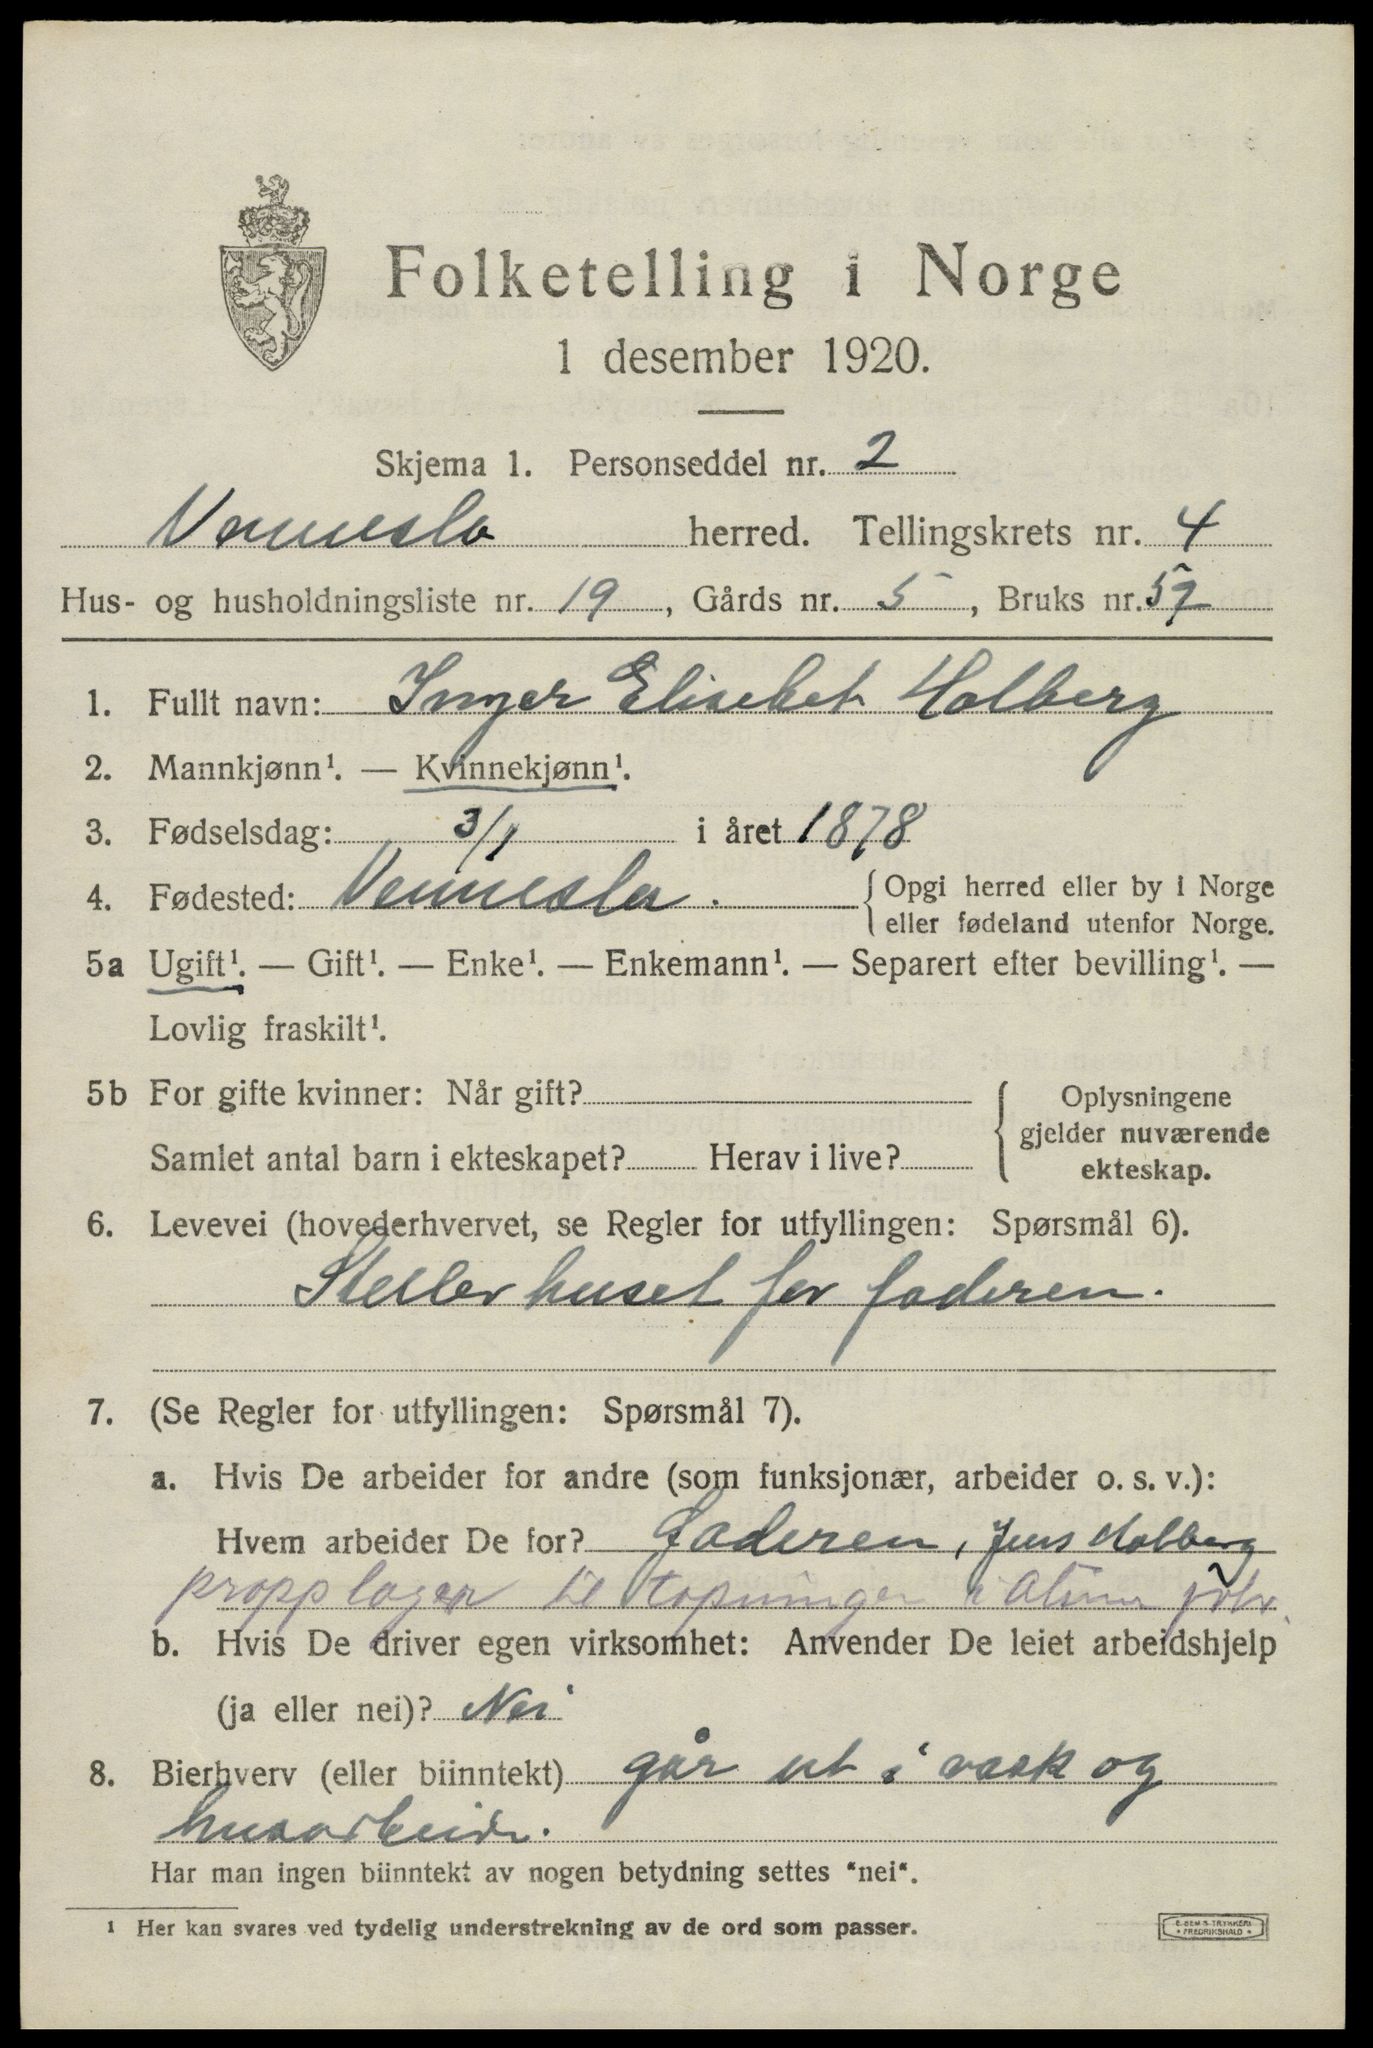 Folketelling i Norge
1 desember 1920.
Skjema 1. Personseddel nr. 2
Vennesla herred. Tellingskrets nr. 4
Hus- og husholdningsliste nr. 19, Gårds nr. 5, Bruks nr. 57
1. Fullt navn: Inger Elisebet Holberg
2. Mannkjønn¹. — Kvinnekjønn¹.
3. Fødselsdag: 3/1 i året 1878
4. Fødested: Vennesla. { Opgi herred eller by i Norge
eller fødeland utenfor Norge.
5a Ugift¹. — Gift¹. — Enke¹. — Enkemann¹. — Separert efter bevilling¹. —
Lovlig fraskilt¹.
5b For gifte kvinner: Når gift? { Oplysningene
gjelder nuværende
Samlet antal barn i ekteskapet? Herav i live?
ekteskap.
6. Levevei (hovederhvervet, se Regler for utfyllingen: Spørsmål 6).
Steller huset for faderen.
7. (Se Regler for utfyllingen: Spørsmål 7).
a. Hvis De arbeider for andre (som funksjonær, arbeider o. s. v.):
Hvem arbeider De for? Faderen, Jens Holberg
propplager til tapninger i
b. Hvis De driver egen virksomhet: Anvender De leiet arbeidshjelp
(ja eller nei)? Nei
8. Bierhverv (eller biinntekt) går ut i vask og
husarbeide.
Har man ingen biinntekt av nogen betydning settes "nei".
¹ Her kan svares ved tydelig understrekning av de ord som passer.
E. SEM S TRYKKERI
• FREDRIKSHALD •